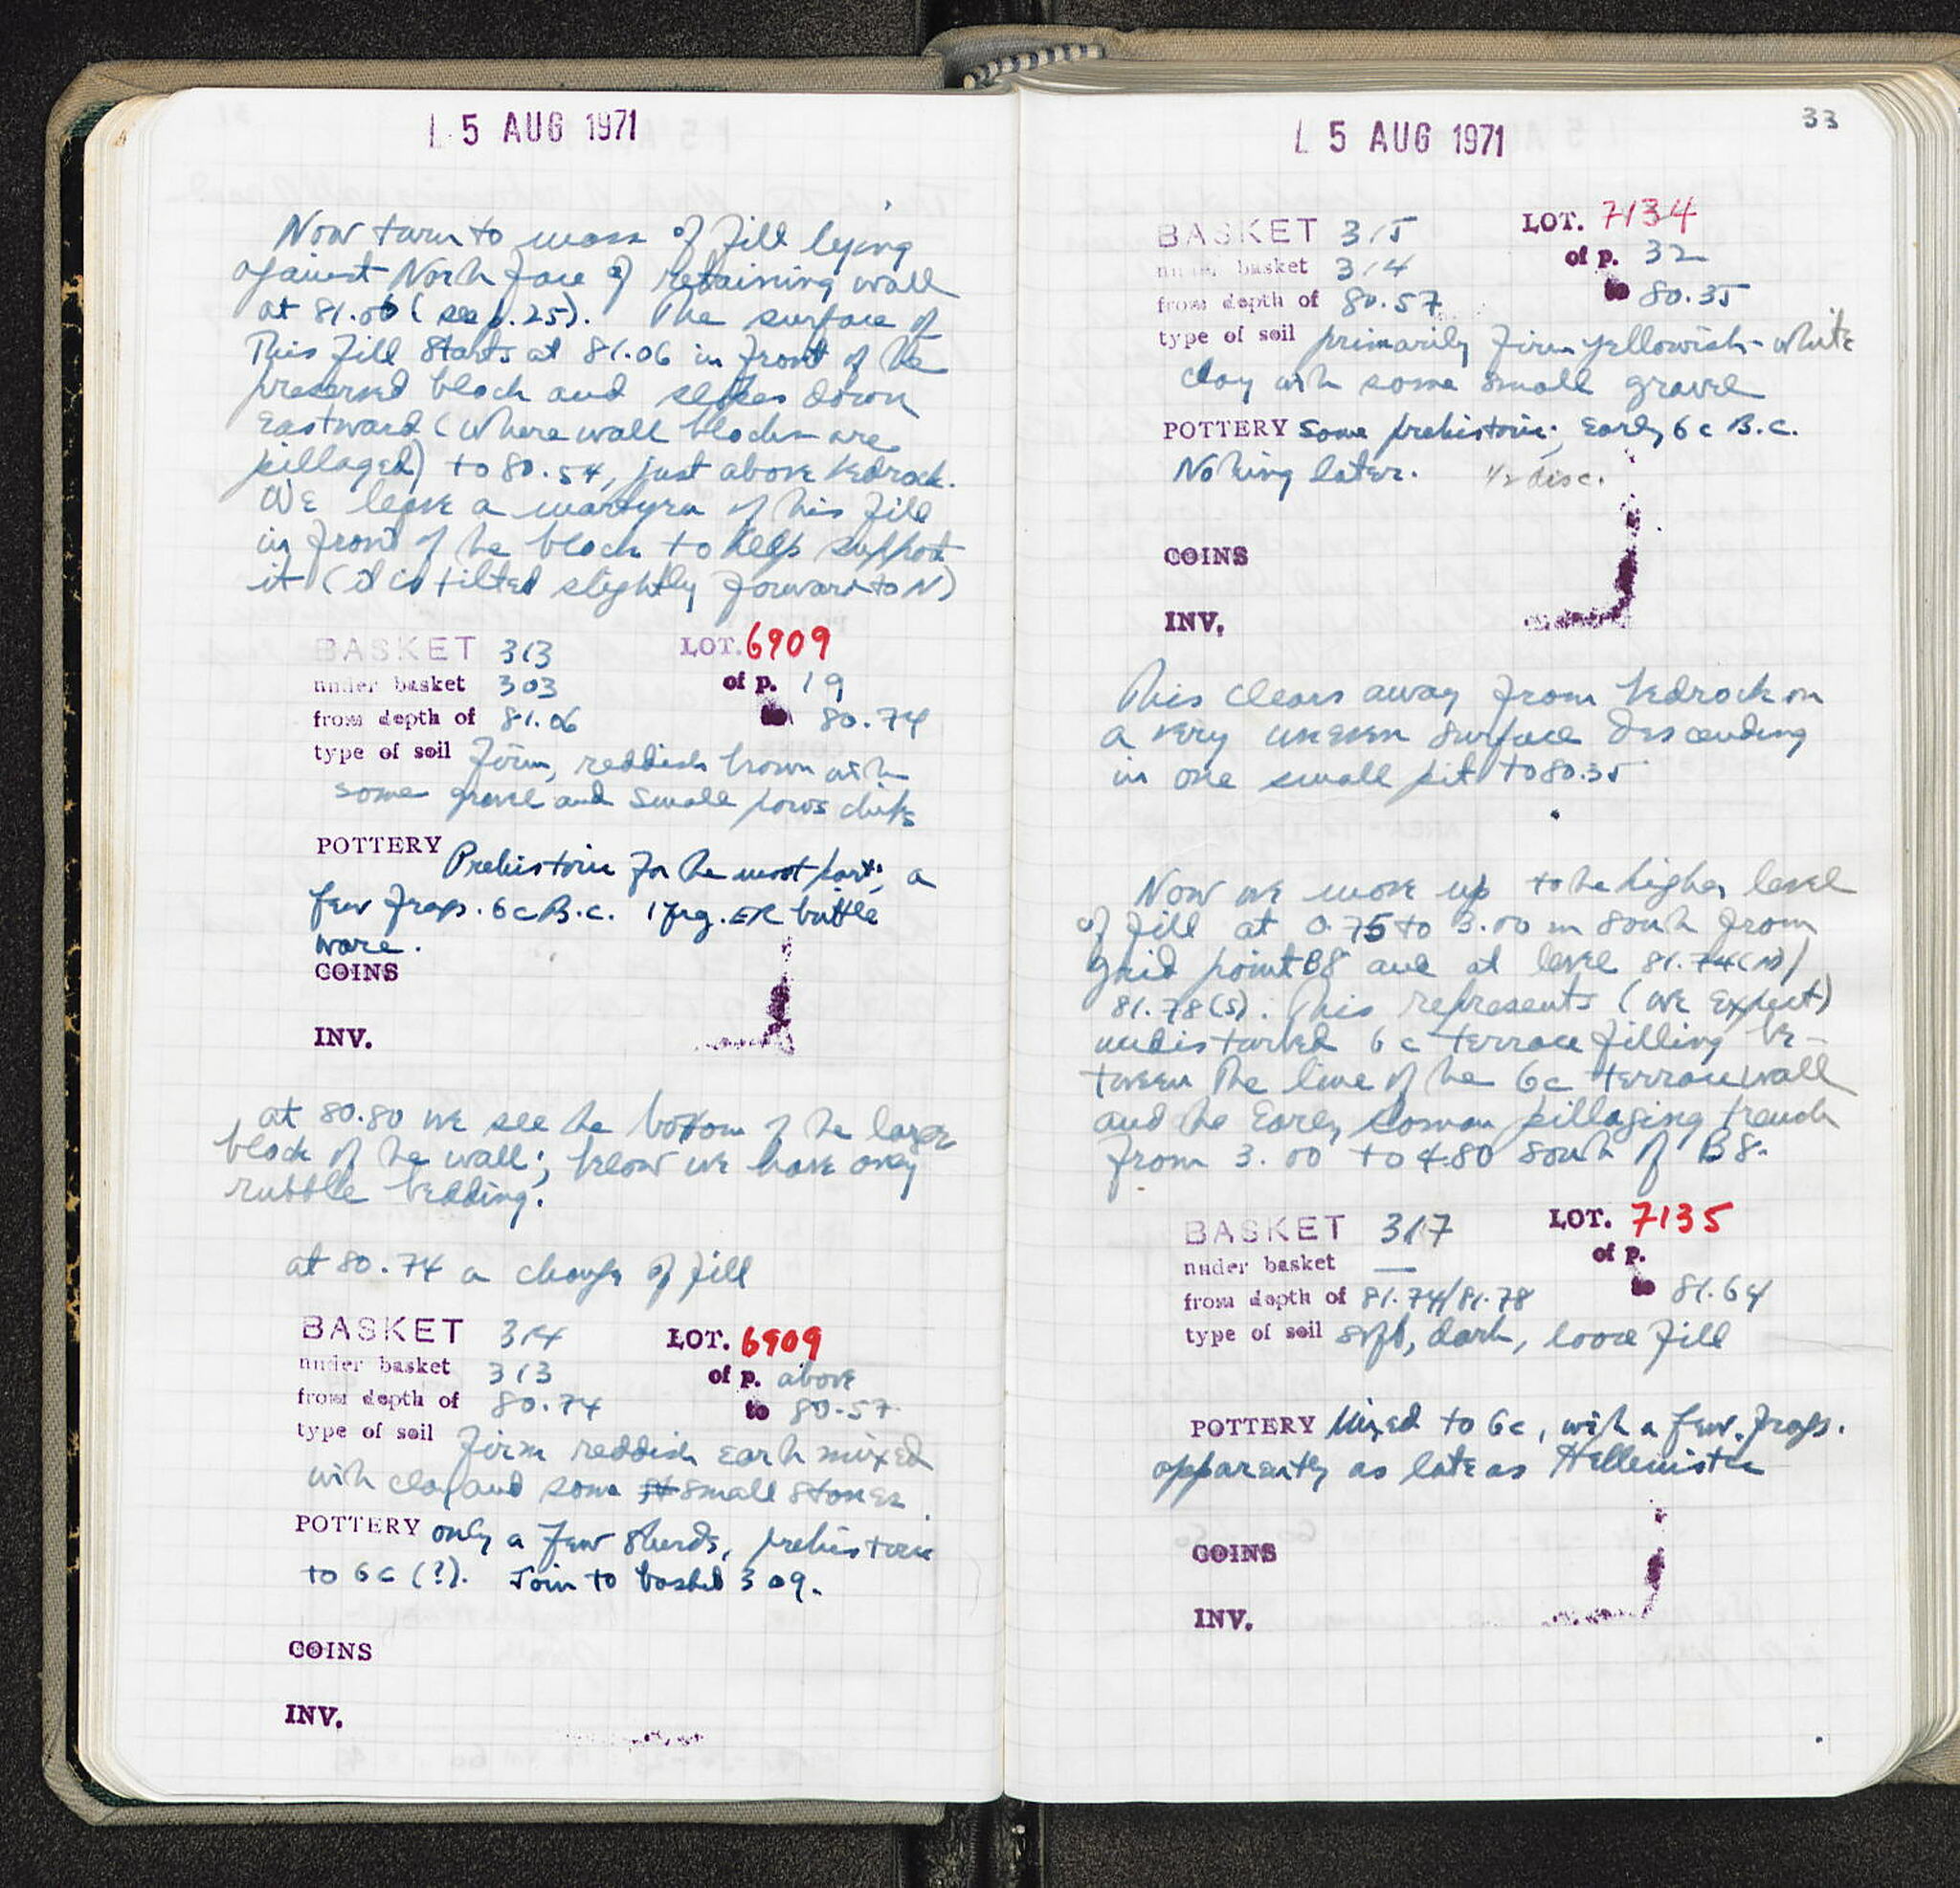 5 AUG 1971
Now turn to mass of fill lying
against North face of retaining wall
at 81.06 (see p. 25). The surface of
This fill starts at 81.06 in front of the
preserved block and slopes down
Eastward (where wall blocks are
pillaged) to 80.54, just above bedrock.
We leave a martyra of this fill
in front of the block to help support
it (it is tilted slightly forward to N)
BASKET 313 LOT. 6909
under basket 303 of p. 19
from depth of 81.06 to 80.74
type of soil Firm, reddish brown with
some gravel and small poros chips
POTTERY Prehistoric for the most part; a
few frags. 6c B.C. 1 frg. ER brittle
ware.
COINS
INV.
at 80.80 we see the bottom of the larger
block of the wall; below we have only
rubble bedding.
at 80.74 a change of fill
BASKET 314 LOT. 6909
under basket 313 of p. above
from depth of 80.74 to 80.57
type of soil Firm reddish earth mixed
with clay and some st small stones
POTTERY only a few sherds, prehistoric
to 6c (?). Join to basket 309.
COINS
INV.
5 AUG 1971
33
BASKET 315 LOT. 7134
under basket 314 of p. 32
from depth of 80.57 to 80.35
type of soil primarily firm yellowish-white
clay with some small gravel
POTTERY Some prehistoric; Early 6c B.C.
Nothing later. 1/2 disc.
COINS
INV.
This clears away from bedrock on
a very uneven surface descending
in one small pit to 80.35
Now we move up to the higher level
of fill at 0.75 to 3.00 m South from
grid point B8 and at level 81.74(N)/
81.78(S). This represents (we expect)
undisturbed 6c terrace filling be-
tween the line of the 6c terrace wall
and the Early Roman pillaging trench
from 3.00 to 4.80 South of B8.
BASKET 317 LOT. 7135
under basket — of p.
from depth of 81.74/81.78 to 81.64
type of soil soft, dark, loose fill
POTTERY Mixed to 6c, with a few frags.
apparently as late as Hellenistic
COINS
INV.